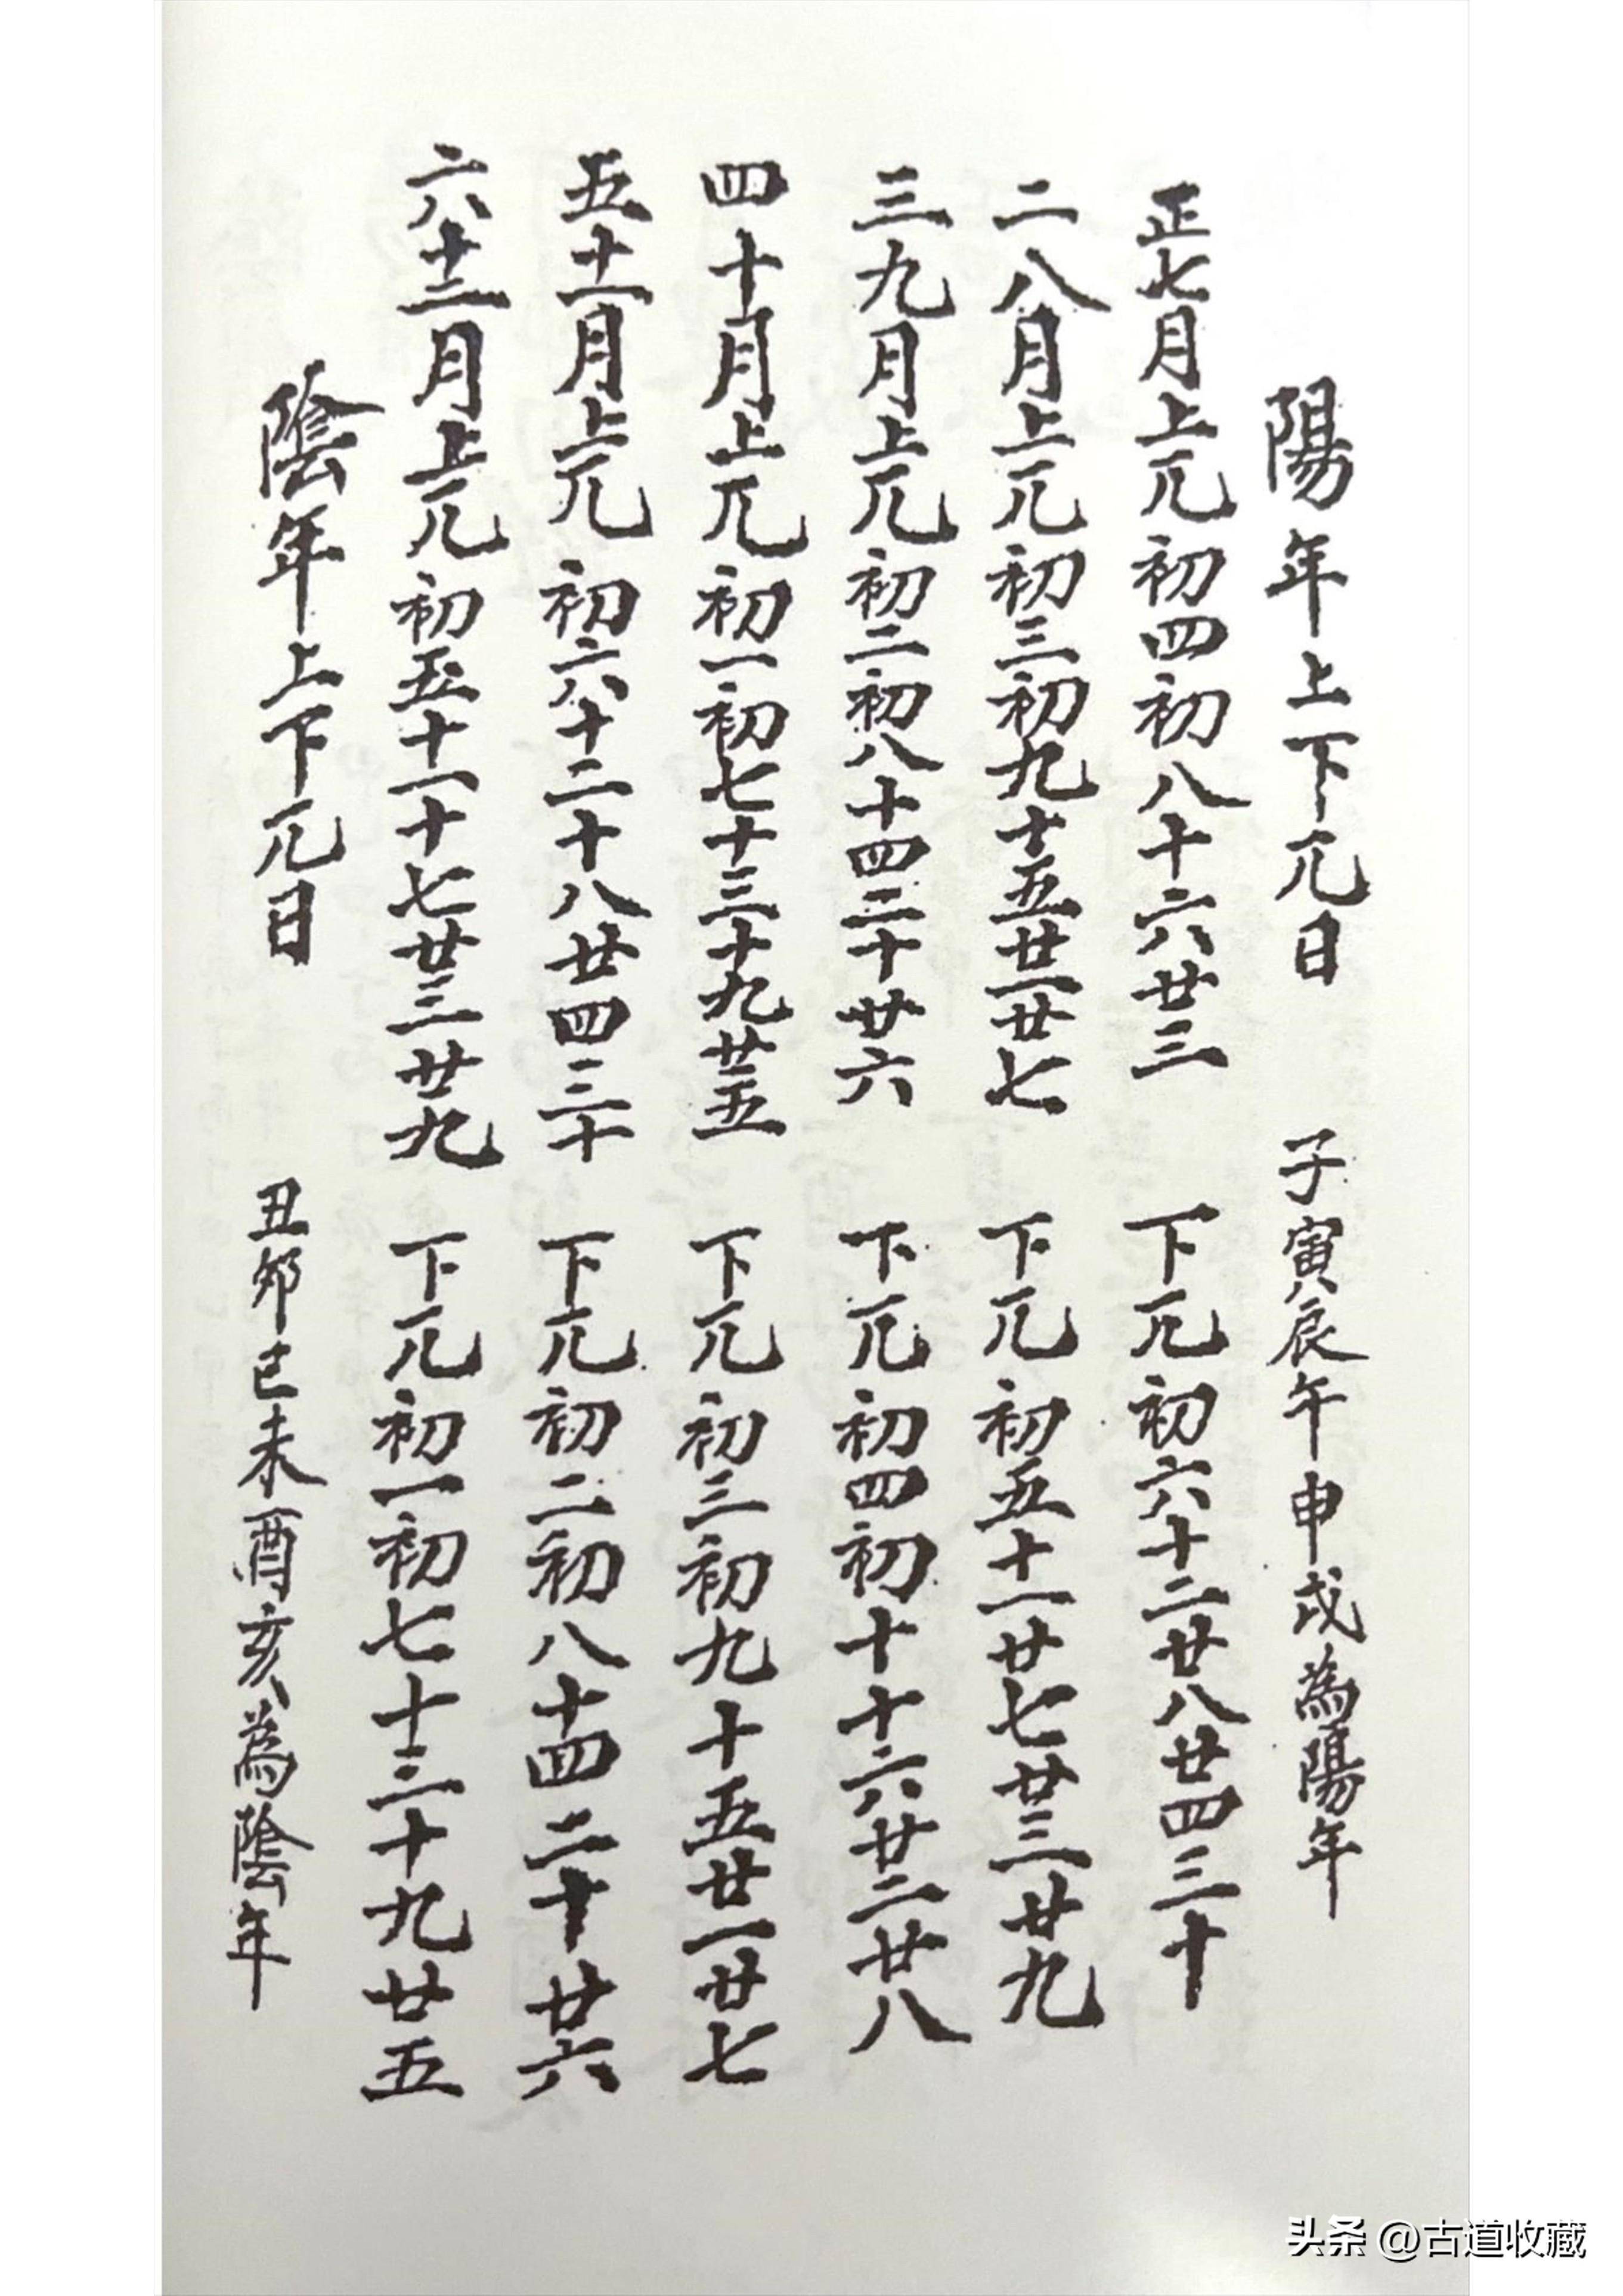 陽年上下元日　子寅辰午申戌為陽年
正七月上元初四初八十六廿三　下元初六十二廿八廿四三十
二八月上元初三初九十五廿一廿七　下元初五十一廿七廿三廿九
三九月上元初二初八十四二十廿六　下元初四初十十六廿二廿八
四十月上元初一初七十三十九廿五　下元初三初九十五廿一廿七
五十一月上元初六十二十八廿四三十　下元初二初八十四二十廿六
六十二月上元初五十一十七廿三廿九　下元初一初七十三十九廿五
陰年上下元日　丑卯巳未酉亥為陰年
头条 @古道收藏